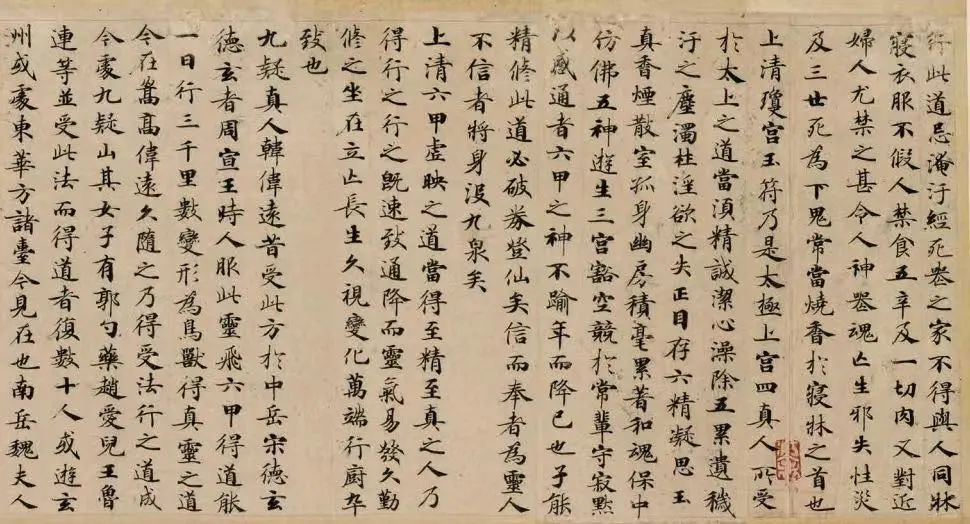 行此道忌淹汙經死喪之家不得與人同牀
寢衣服不假人禁食五辛及一切肉又對近
婦人尤禁之甚令人神喪魂亡生邪失性災
及三世死為下鬼常當燒香於寢牀之首也
上清瓊宮玉符乃是太極上宮四真人所受
於太上之道當須精誠潔心澡除五累遺穢
汙之塵濁杜淫欲之失正目存六精凝思玉
真香煙散室孤身幽房積毫累著和魂保中
仿佛五神遊生三宮豁空競於常輩守寂默
以感通者六甲之神不踰年而降已也子能
精修此道必破券登仙矣信而奉者為靈人
不信者將身沒九泉矣
上清六甲虛映之道當得至精至真之人乃
得行之行之既速致通降而靈氣易發久勤
修之坐在立亡長生久視變化萬端行廚卒
致也
九疑真人韓偉遠昔受此方於中岳宋德玄
德玄者周宣王時人服此靈飛六甲得道能
一日行三千里數變形為鳥獸得真靈之道
今在嵩高偉遠久隨之乃得受法行之道成
今處九疑山其女子有郭勺藥趙愛兒王魯
連等並受此法而得道者復數十人或遊玄
州或處東華方諸臺今見在也南岳魏夫人